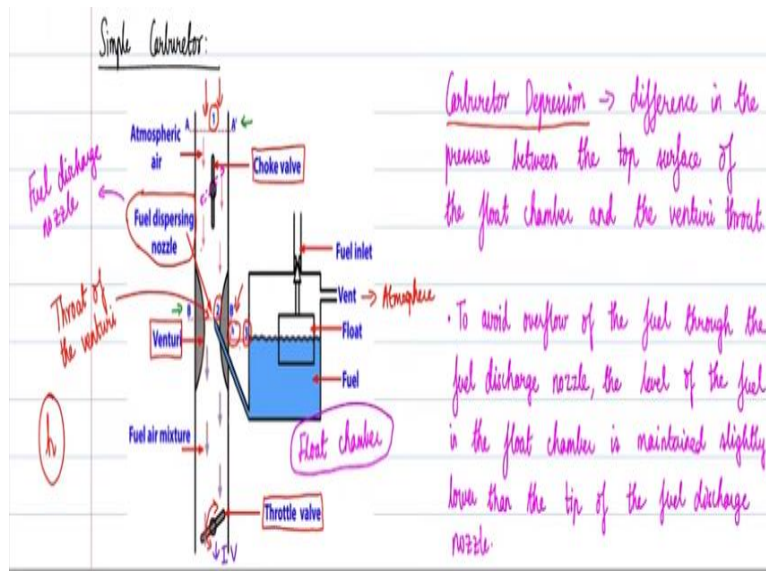 Simple Carburetor:
A
1
A'
Atmospheric
air
Choke valve
Fuel discharge
nozzle
Fuel dispersing
nozzle
Fuel inlet
Vent → Atmosphere
Throat of
the venturi
B
2
B'
Float
Venturi
Fuel
h
Fuel air mixture
Float chamber
Throttle valve
I V
Carburetor Depression → difference in the
pressure between the top surface of
the float chamber and the venturi throat.
· To avoid overflow of the fuel through the
fuel discharge nozzle, the level of the fuel
in the float chamber is maintained slightly
lower than the tip of the fuel discharge
nozzle.